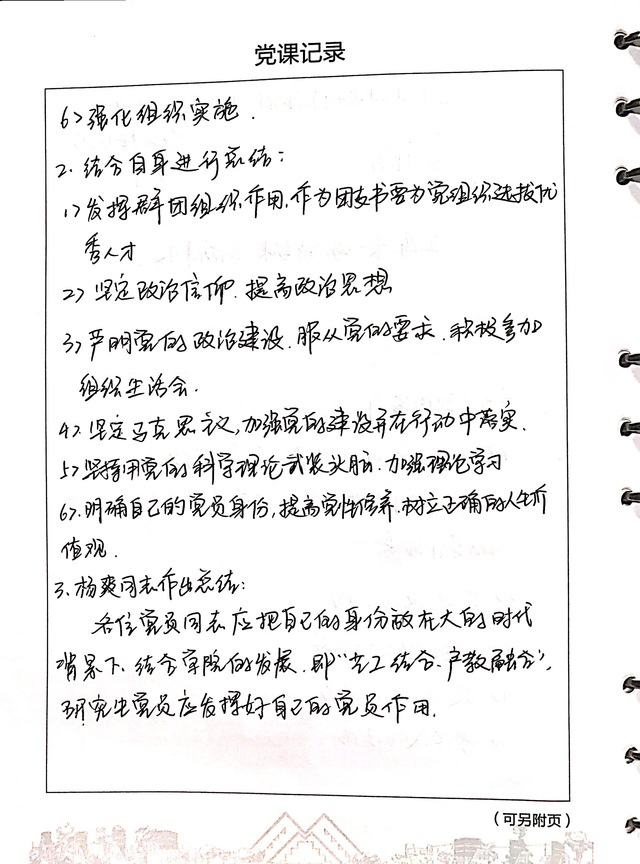 党课记录
6>强化组织实施.
2.结合自身进行总结:
1>发挥群团组织作用,作为团支书要为党组织选拔优
秀人才
2>坚定政治信仰.提高政治思想
3>严明党的政治建设.服从党的要求.积极参加
组织生活会.
4>坚定马克思主义,加强党的建设并在行动中落实.
5>坚持用党的科学理论武装头脑.加强理论学习
6>.明确自己的党员身份,提高党性修养.树立正确的人生价
值观.
3.杨爽同志作出总结:
各位党员同志应把自己的身份放在大的时代
背景下.结合学院的发展.即“艺工结合.产教融合”,
研究生党员应发挥好自己的党员作用.
(可另附页)